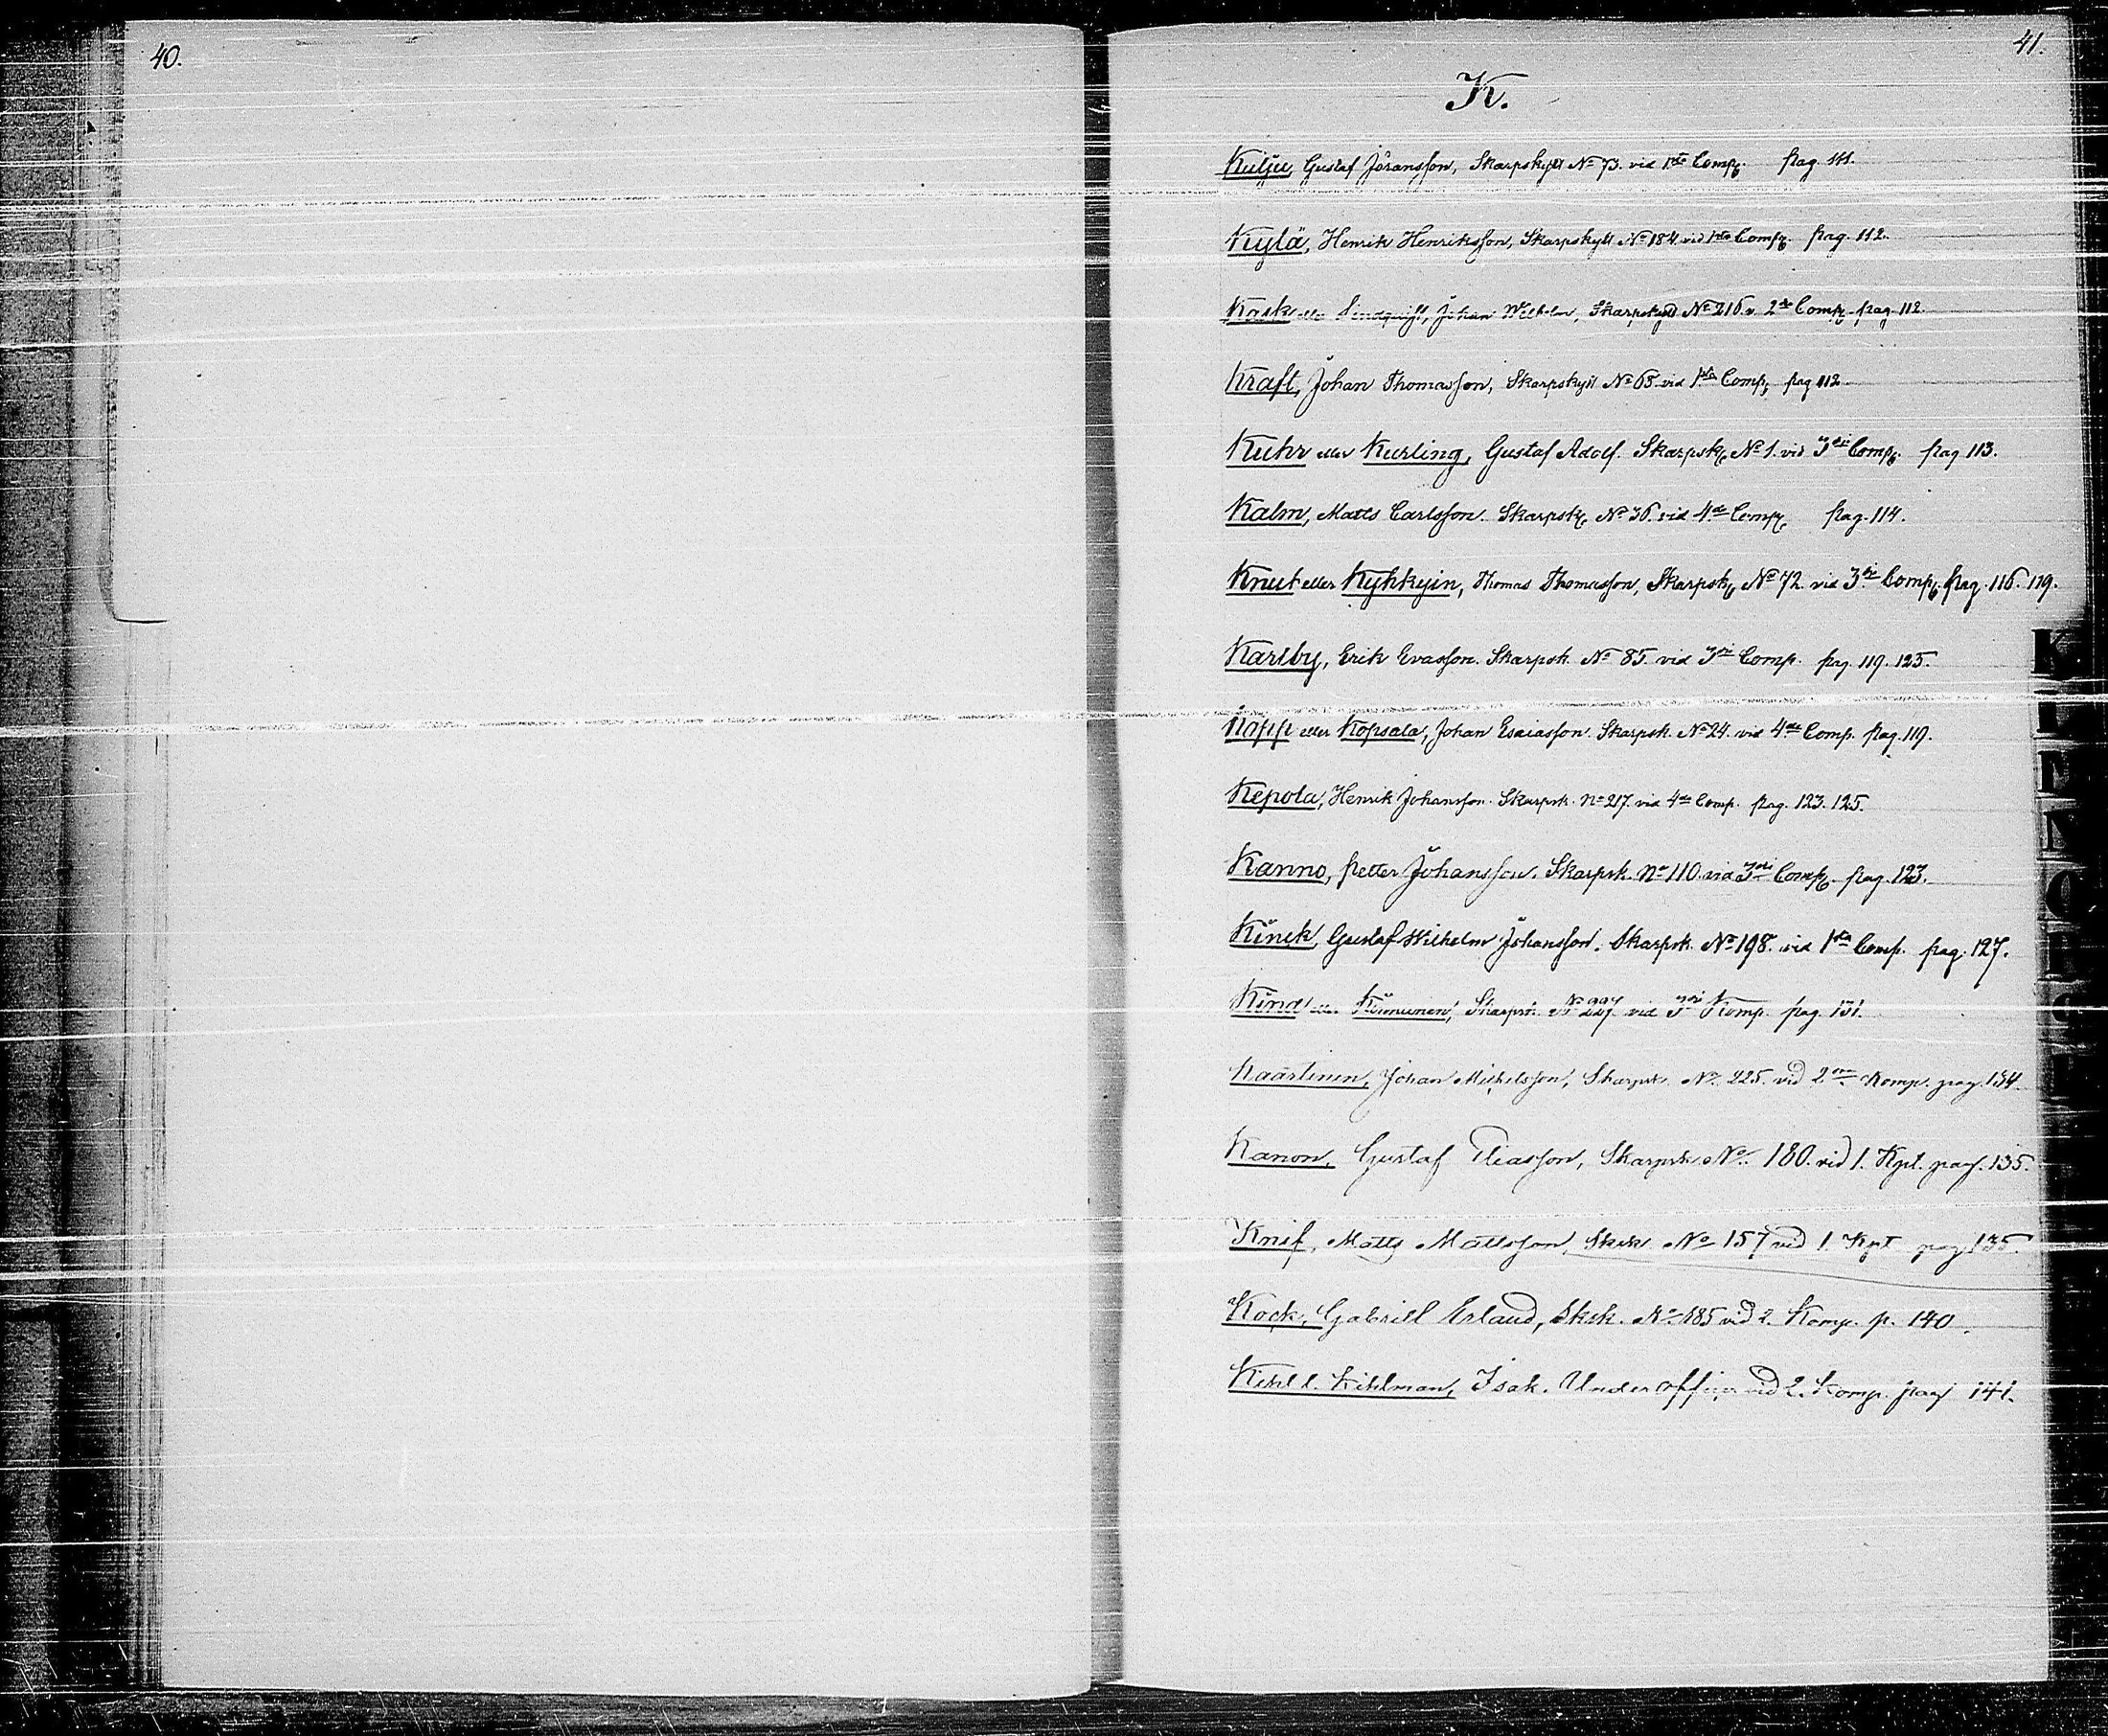 40.
41.
K.
Kulju, Gustaf Jöransson, Skarpskytt No 73. vid 1sta Comp. pag. 111.
Kylä, Henrik Henriksson, Skarpskytt No 184 vid 1sta Comp. pag. 112.
Kask eller Lindqvist, Johan Wilhelm, Skarpskytt No 216. v. 2dra Comp. pag. 112.
Kraft, Johan Thomasson, Skarpskytt No 65. vid 1sta Comp. pag 112
Kuhr eller Kurling, Gustaf Adolf. Skarpsk. No 1. vid 3die Comp. pag 113.
Kalm, Matts Carlsson. Skarpsk. No 36. vid 4de Comp. pag. 114.
Knut eller Kyhkyin, Thomas Thomasson, Skarpsk. No 72. vid 3die Comp. pag. 116. 119.
Karlby, Erik Evasson. Skarpsk. No 85. vid 3die Comp. pag. 119. 125.
Kopp eller Kopsala, Johan Esaiasson. Skarpsk. No 24. vid 4de Comp. pag. 119.
Kepola, Henrik Johansson. Skarpsk. No 217. vid 4de Comp. pag. 123. 125.
Kanno, Petter Johansson. Skarpsk. No 110. vid 3die Comp. pag. 123.
Kinck, Gustaf Wilhelm Johansson. Skarpsk. No 198. vid 1sta Comp. pag. 127.
Kind eller Skarpsk. No 227 vid 3die Komp. pag. 131.
Kaartinen, Johan Michelsson, Skarpsk. No. 225. vid 2dra Komp. pag. 134
Kanon, Gustaf Eliasson, Skarpsk. No. 180. vid 1. Kpt. pag. 135.
Knif, Matts Mattsson, Sksk. No 157 vid 1. Kpt pag. 135.
Kock, Gabriell Erland, Sksk. No 185 vid 2. Komp. p. 140.
Kihl l. Kihlman, Isak. Underofficer vid 2. Komp. pag 141.
K